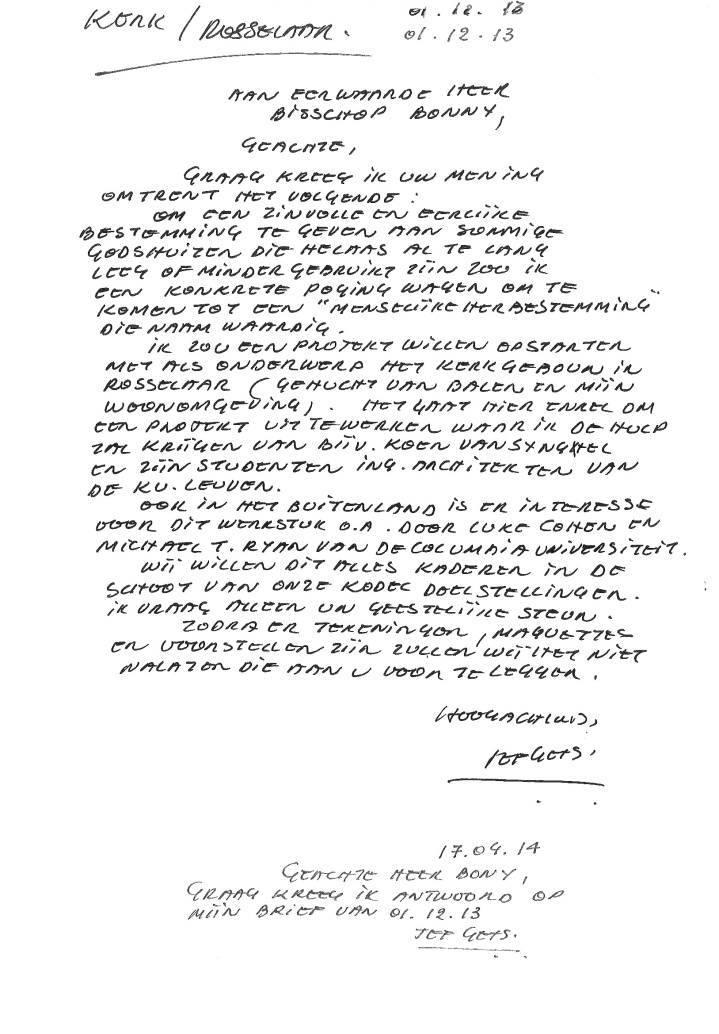 KERK / ROSSELAAR.
01.12.13
01.12.13
AAN EERWAARDE HEER
BISSCHOP BONNY,
GEACHTE,
GRAAG KREEG IK UW MENING
OMTRENT HET VOLGENDE :
OM EEN ZINVOLLE EN EERLIJKE
BESTEMMING TE GEVEN AAN SOMMIGE
GODSHUIZEN DIE HELAAS AL TE LANG
LEEG OF MINDER GEBRUIKT ZIJN ZOU IK
EEN KONKRETE POGING WAGEN OM TE
KOMEN TOT EEN "MENSELIJKE HERBESTEMMING"
DIE NAAM WAARDIG.
IK ZOU EEN PROJEKT WILLEN OPSTARTEN
MET ALS ONDERWERP HET KERKGEBOUW IN
ROSSELAAR (GEHUCHT VAN BALEN EN MIJN
WOONOMGEVING). HET GAAT HIER ENKEL OM
EEN PROJEKT UIT TE WERKEN WAAR IK DE HULP
ZAL KRIJGEN VAN BIJV. KOEN VAN SYNGHEL
EN ZIJN STUDENTEN ING. ARCHITEKTEN VAN
DE KU. LEUVEN.
OOK IN HET BUITENLAND IS ER INTERESSE
VOOR DIT WERKSTUK O.A. DOOR LUKE COHEN EN
MICHAEL T. RYAN VAN DE COLUMBIA UNIVERSITEIT.
WIJ WILLEN DIT ALLES KADEREN IN DE
SCHOOT VAN ONZE KODEC DOELSTELLINGEN.
IK VRAAG ALLEEN UW GEESTELIJKE STEUN.
ZODRA ER TEKENINGEN, MAQUETTES
EN VOORSTELLEN ZIJN ZULLEN WIJ HET NIET
NALATEN DIE AAN U VOOR TE LEGGEN.
HOOGACHTEND,
JEF GEYS.
17.04.14
GEACHTE HEER BONY,
GRAAG KREEG IK ANTWOORD OP
MIJN BRIEF VAN 01.12.13
JEF GEYS.